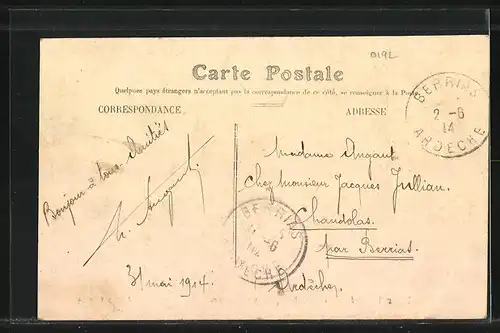 0192
Carte Postale
Quelques pays étrangers n'acceptant pas la correspondance de ce côté, se renseigner à la Poste
CORRESPONDANCE
ADRESSE
BERRIAS
2 -6
14
ARDÈCHE
Bonjour à tous. Amitiés
31 mai 1914
Madame
Chez Monsieur Jacques Jullian.
Chandolas.
par Berrias.
Ardèche
BERRIAS
-6
ARDÈCHE